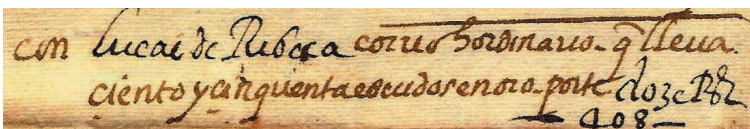 con lucas de Ribera correo hordinario q̃ lleua
ciento y cinquenta escudos en oro porte doze